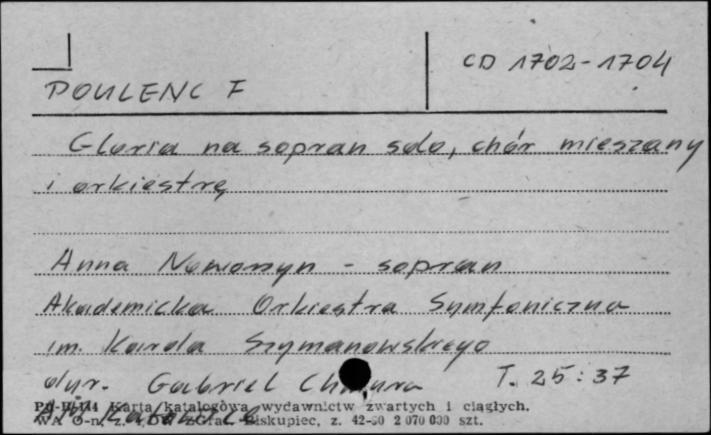 CD 1702-1704
POULENC F
Gloria na sopran solo, chór mieszany
i orkiestrę
Anna - sopran
Akademicka Orkiestra Symfoniczna
im. Karola Szymanowskiego
dyr. Gabriel Chmura T. 25:37
Karta katalogowa wydawnictw zwartych i ciągłych.
Biskupiec, z. 2 070 000 szt.